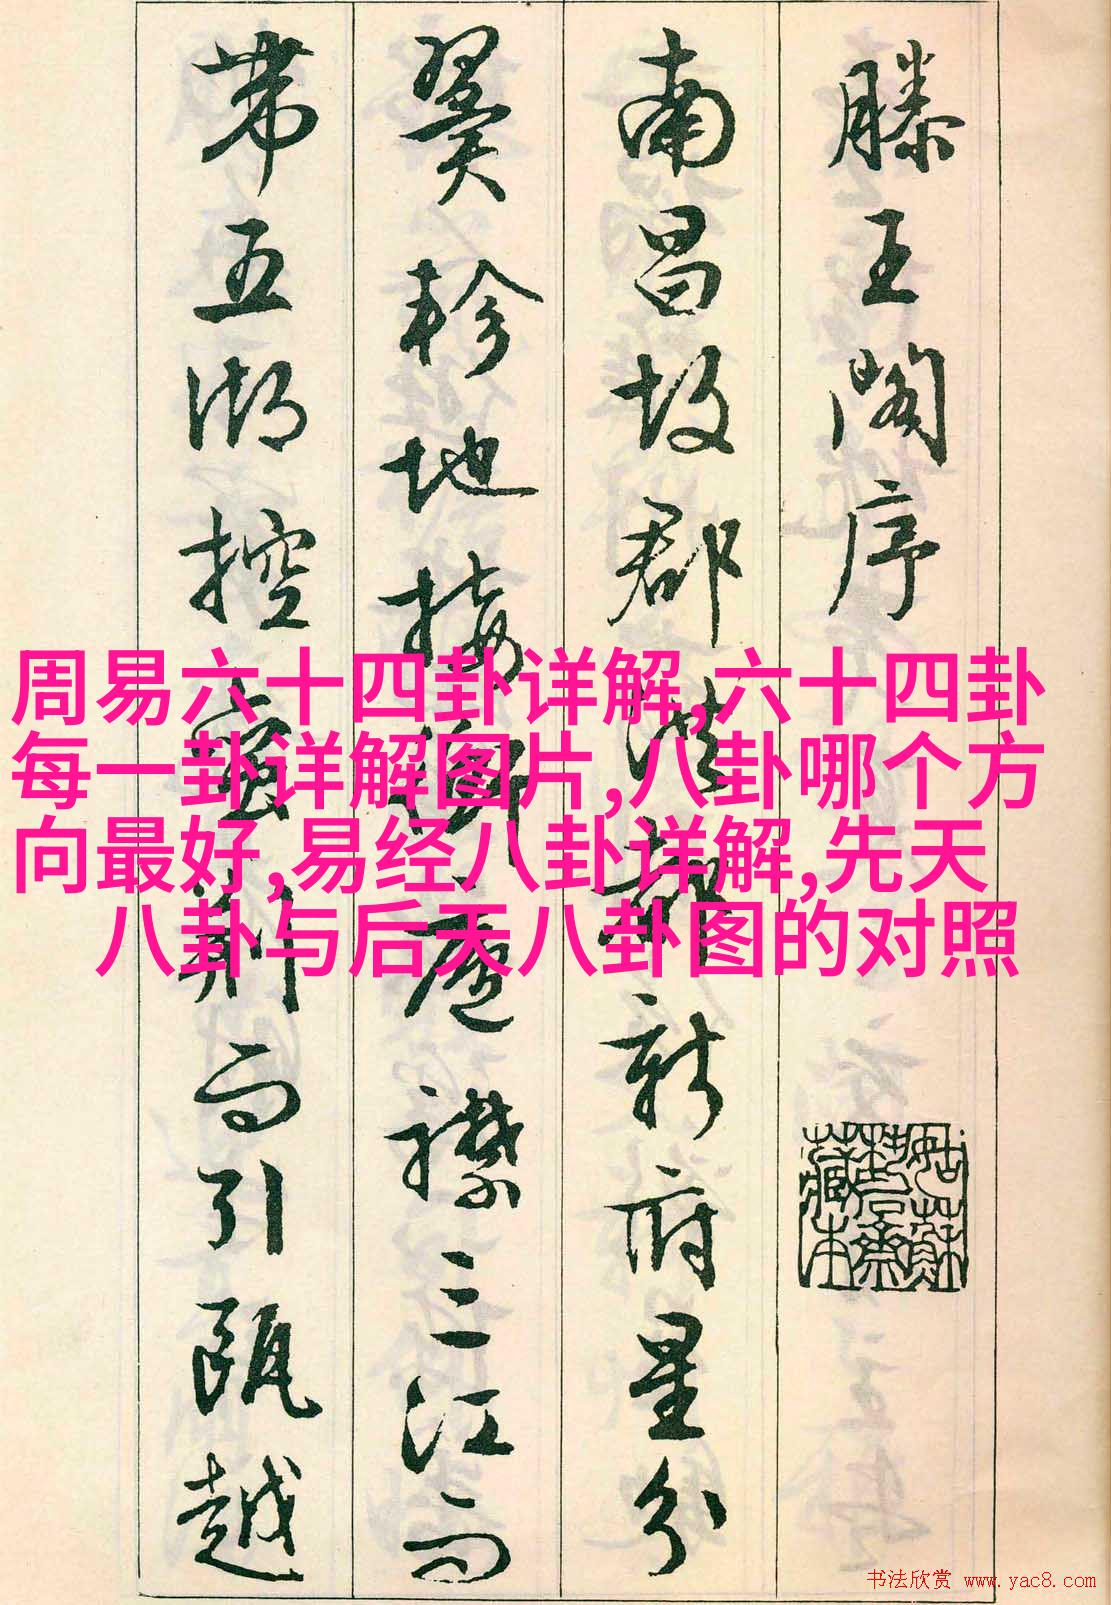 滕王閣序
南昌故郡洪都新府星分
翼軫地接衡廬襟三江而
帶五湖控蠻荊而引甌越
周易六十四卦详解,六十四卦
每一卦详解图片,八卦哪个方
向最好,易经八卦详解,先天
八卦与后天八卦图的对照
书法欣赏 www.yac8.com